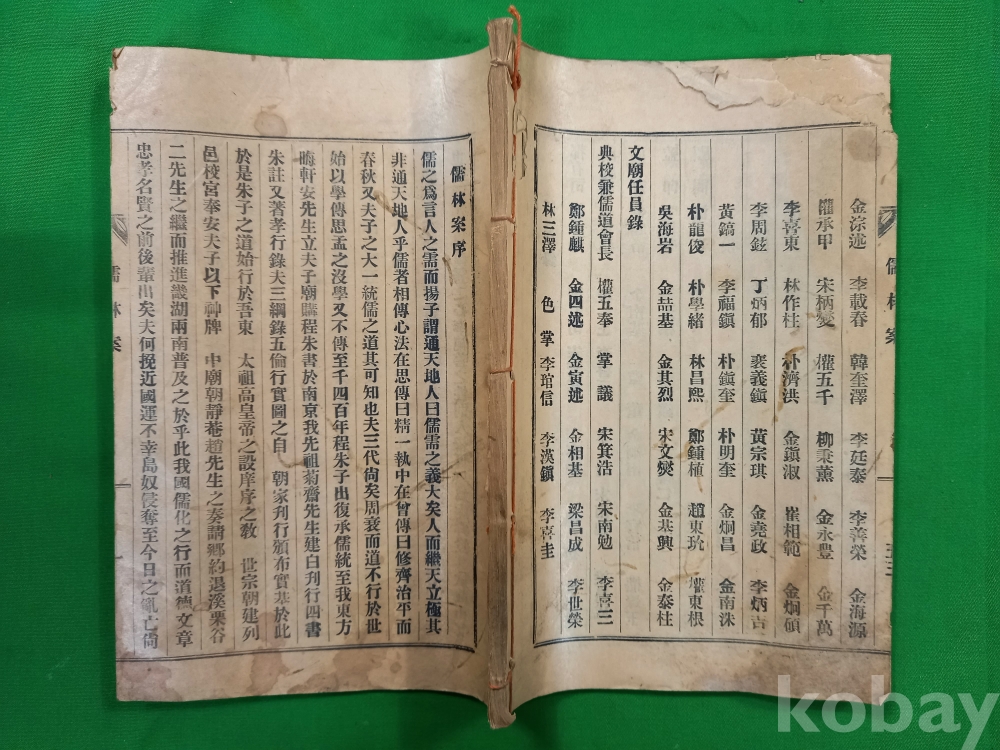 儒林案
金淙述 李載春 韓奎澤 李廷泰 李善榮 金海源
權承甲 宋柄燮 權五千 柳秉薰 金永豊 金千萬
李喜東 林作柱 朴濟洪 金鎭淑 崔相範 金炯碩
李周鉉 丁炳郁 裵義鎭 黃宗琪 金堯政 李炳吉
黃鎬一 李福鎭 朴鎭奎 朴明奎 金炯昌 金南洙
朴龍俊 朴學緖 林昌熙 鄭鍾植 趙東玧 權東根
吳海岩 金喆基 金其烈 宋文燮 金基興 金泰柱
文廟任員錄
典校兼儒道會長 權五奉 掌議 宋箕浩 宋南勉 李喜三
鄭鍾麒 金四述 金寅述 金相基 梁昌成 李世榮
林三澤 色掌 李琯信 李漢鎭 李喜圭
儒林案序
儒之爲言人之需而揚子謂通天地人曰儒儒之義大矣人而繼天立極其
非通天地人乎儒者相傳心法在思傳曰精一執中在曾傳曰修齊治平而
春秋又夫子之大一統儒之道其可知也夫三代尙矣周衰而道不行於世
始以學傳思孟之沒學又不傳至千四百年程朱子出復承儒統至我東方
晦軒安先生立夫子廟購程朱書於南京我先祖菊齋先生建白刋行四書
朱註又著孝行錄夫三綱錄五倫行實圖之自 朝家刋行頒布實基於此
於是朱子之道始行於吾東 太祖高皇帝之設庠序之敎 世宗朝建列
邑校宮奉安夫子以下神牌 中廟朝靜菴趙先生之奏請鄕約退溪栗谷
二先生之繼而推進畿湖兩南普及之於乎此我國儒化之行而道德文章
忠孝名賢之前後輩出矣夫何挽近國運不幸島奴侵奪至今日之亂亡尙
儒林案
kobay